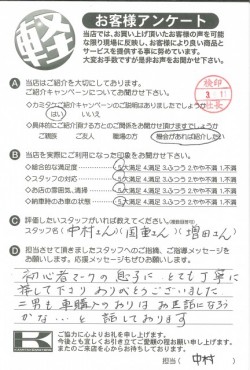 軽
お客様アンケート
当店では、お客様アンケートでお客様の声を可能な
限り現場に反映し、お客様により良い商品と
サービスを提供する事に努めています。
大変お手数ですが是非お声をお聞かせ下さい。
検印
社長
A 当店はご紹介を大切にしております。
ご紹介キャンペーンについてお聞かせ下さい。
○カミタクご紹介キャンペーンのご説明はありましたでしょうか
はい いいえ
○具体的にご紹介頂ける方とのご関係をお聞かせ頂けますでしょうか
ご親戚 ご友人 職場の方 機会があれば紹介したい
B 当店を実際にご利用になられた印象をお聞かせ下さい。
○総合的な満足度 5大満足 4.満足 3.ふつう 2.やや不満 1.不満
○スタッフの対応 5大満足 4.満足 3.ふつう 2.やや不満 1.不満
○お店の雰囲気、清掃 5大満足 4.満足 3.ふつう 2.やや不満 1.不満
○納車時のお車の状態 5大満足 4.満足 3.ふつう 2.やや不満 1.不満
C 評価したいスタッフがいれば教えてください。(複数回答可)
スタッフ名(中村さん)(国重さん)(増田さん)
D 担当させて頂きましたスタッフへのご指摘、ご指導メッセージを
お願いします。応援メッセージもぜひお願いします。
初心者マークの息子に とても丁寧に
接して下さり ありがとうございました
二男も車購入のおりは お世話になろう
かな…と 話しております
K
ご協力に心よりお礼を申し上げます。
今後とも宜しくお引き立てご愛顧の程お願い申し上げます。
またのご来店を心からお待ちしております。
担当( 中村 )